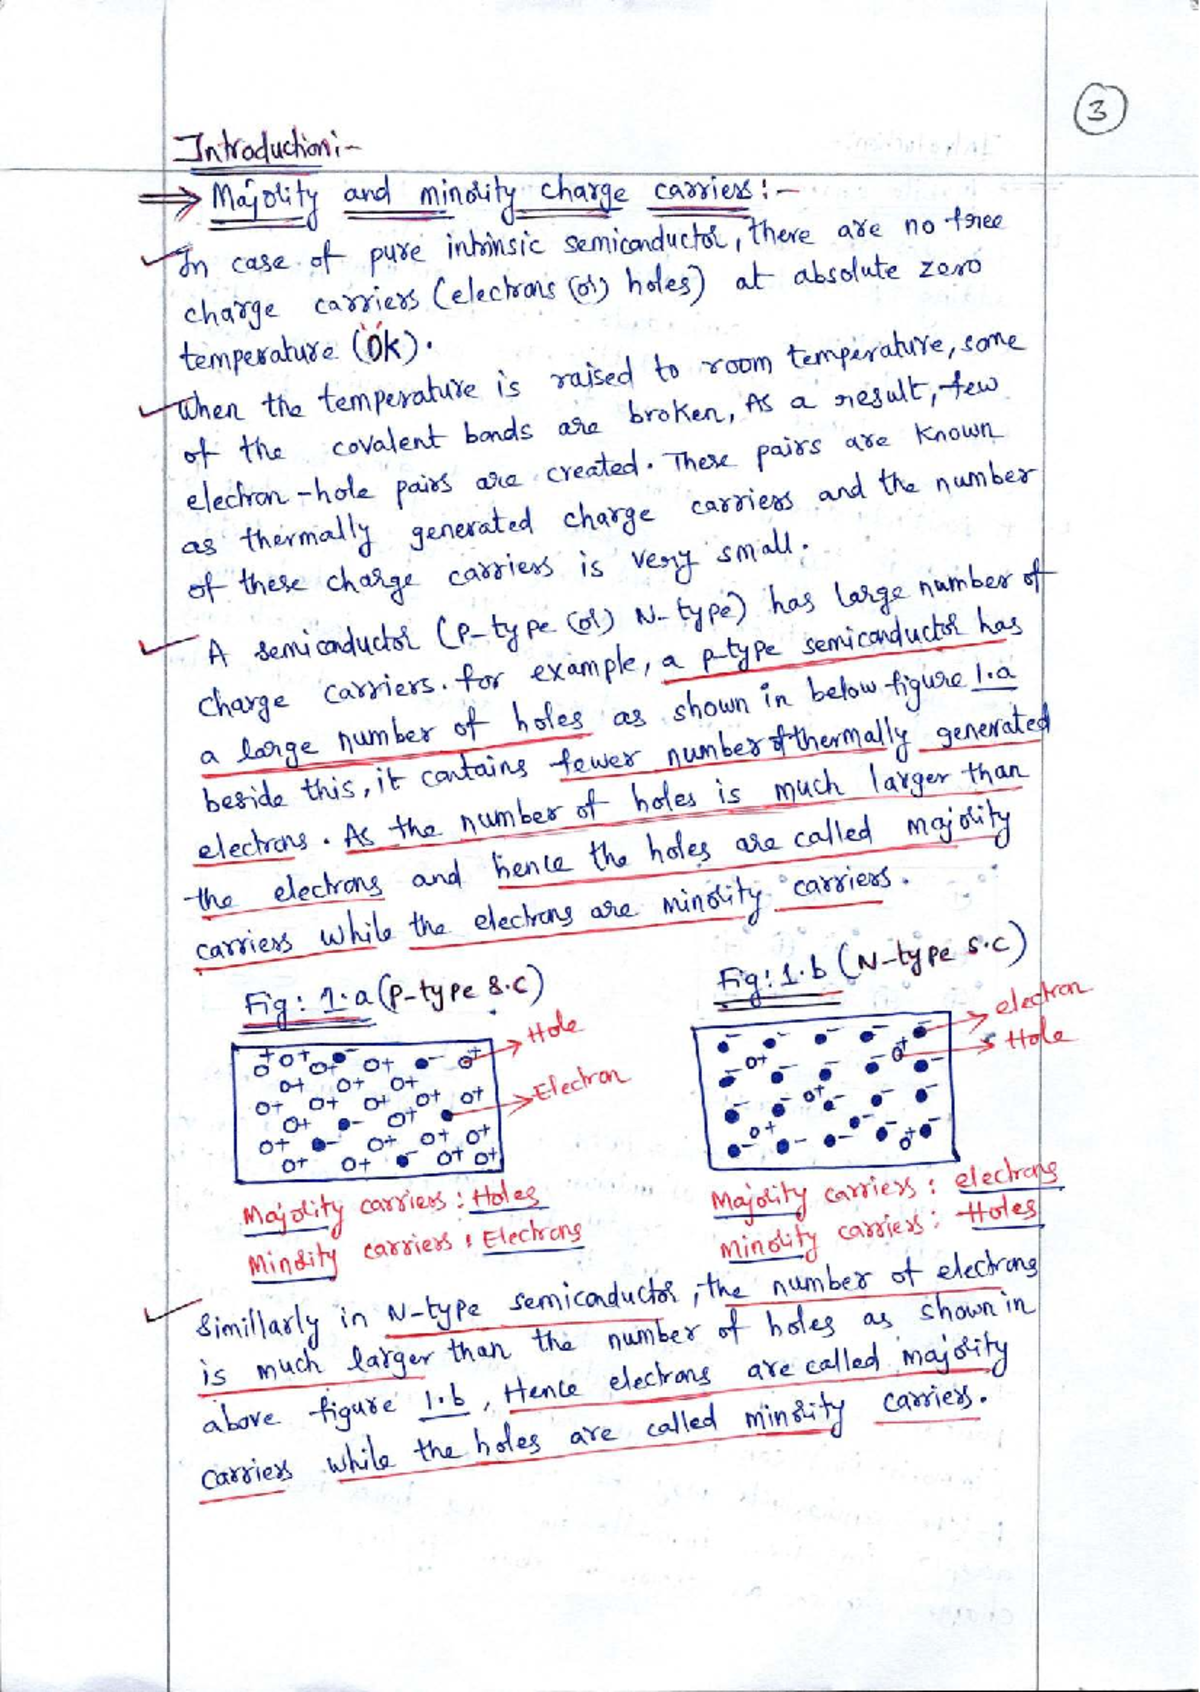 3
Introduction:-
⇒ Majority and minority charge carriers:-
✓ In case of pure intrinsic semiconductor, there are no free
charge carriers (electrons (or) holes) at absolute zero
temperature (0k).
✓ When the temperature is raised to room temperature, some
of the covalent bonds are broken, As a result, few
electron-hole pairs are created. These pairs are known
as thermally generated charge carriers and the number
of these charge carriers is very small.
✓ A semiconductor (P-type (or) N-type) has large number of
charge carriers. for example, a p-type semiconductor has
a large number of holes as shown in below figure 1.a
beside this, it contains fewer number of thermally generated
electrons. As the number of holes is much larger than
the electrons and hence the holes are called majority
carriers while the electrons are minority carriers.
Fig: 1.a (P-type S.C)
Fig: 1.b (N-type S.C)
Hole
Electron
electron
Hole
Majority carriers: Holes
Minority carriers: Electrons
Majority carriers: electrons
Minority carriers: Holes
✓ Simillarly in N-type semiconductor, the number of electrons
is much larger than the number of holes as shown in
above figure 1.b, Hence electrons are called majority
carriers while the holes are called minority carriers.